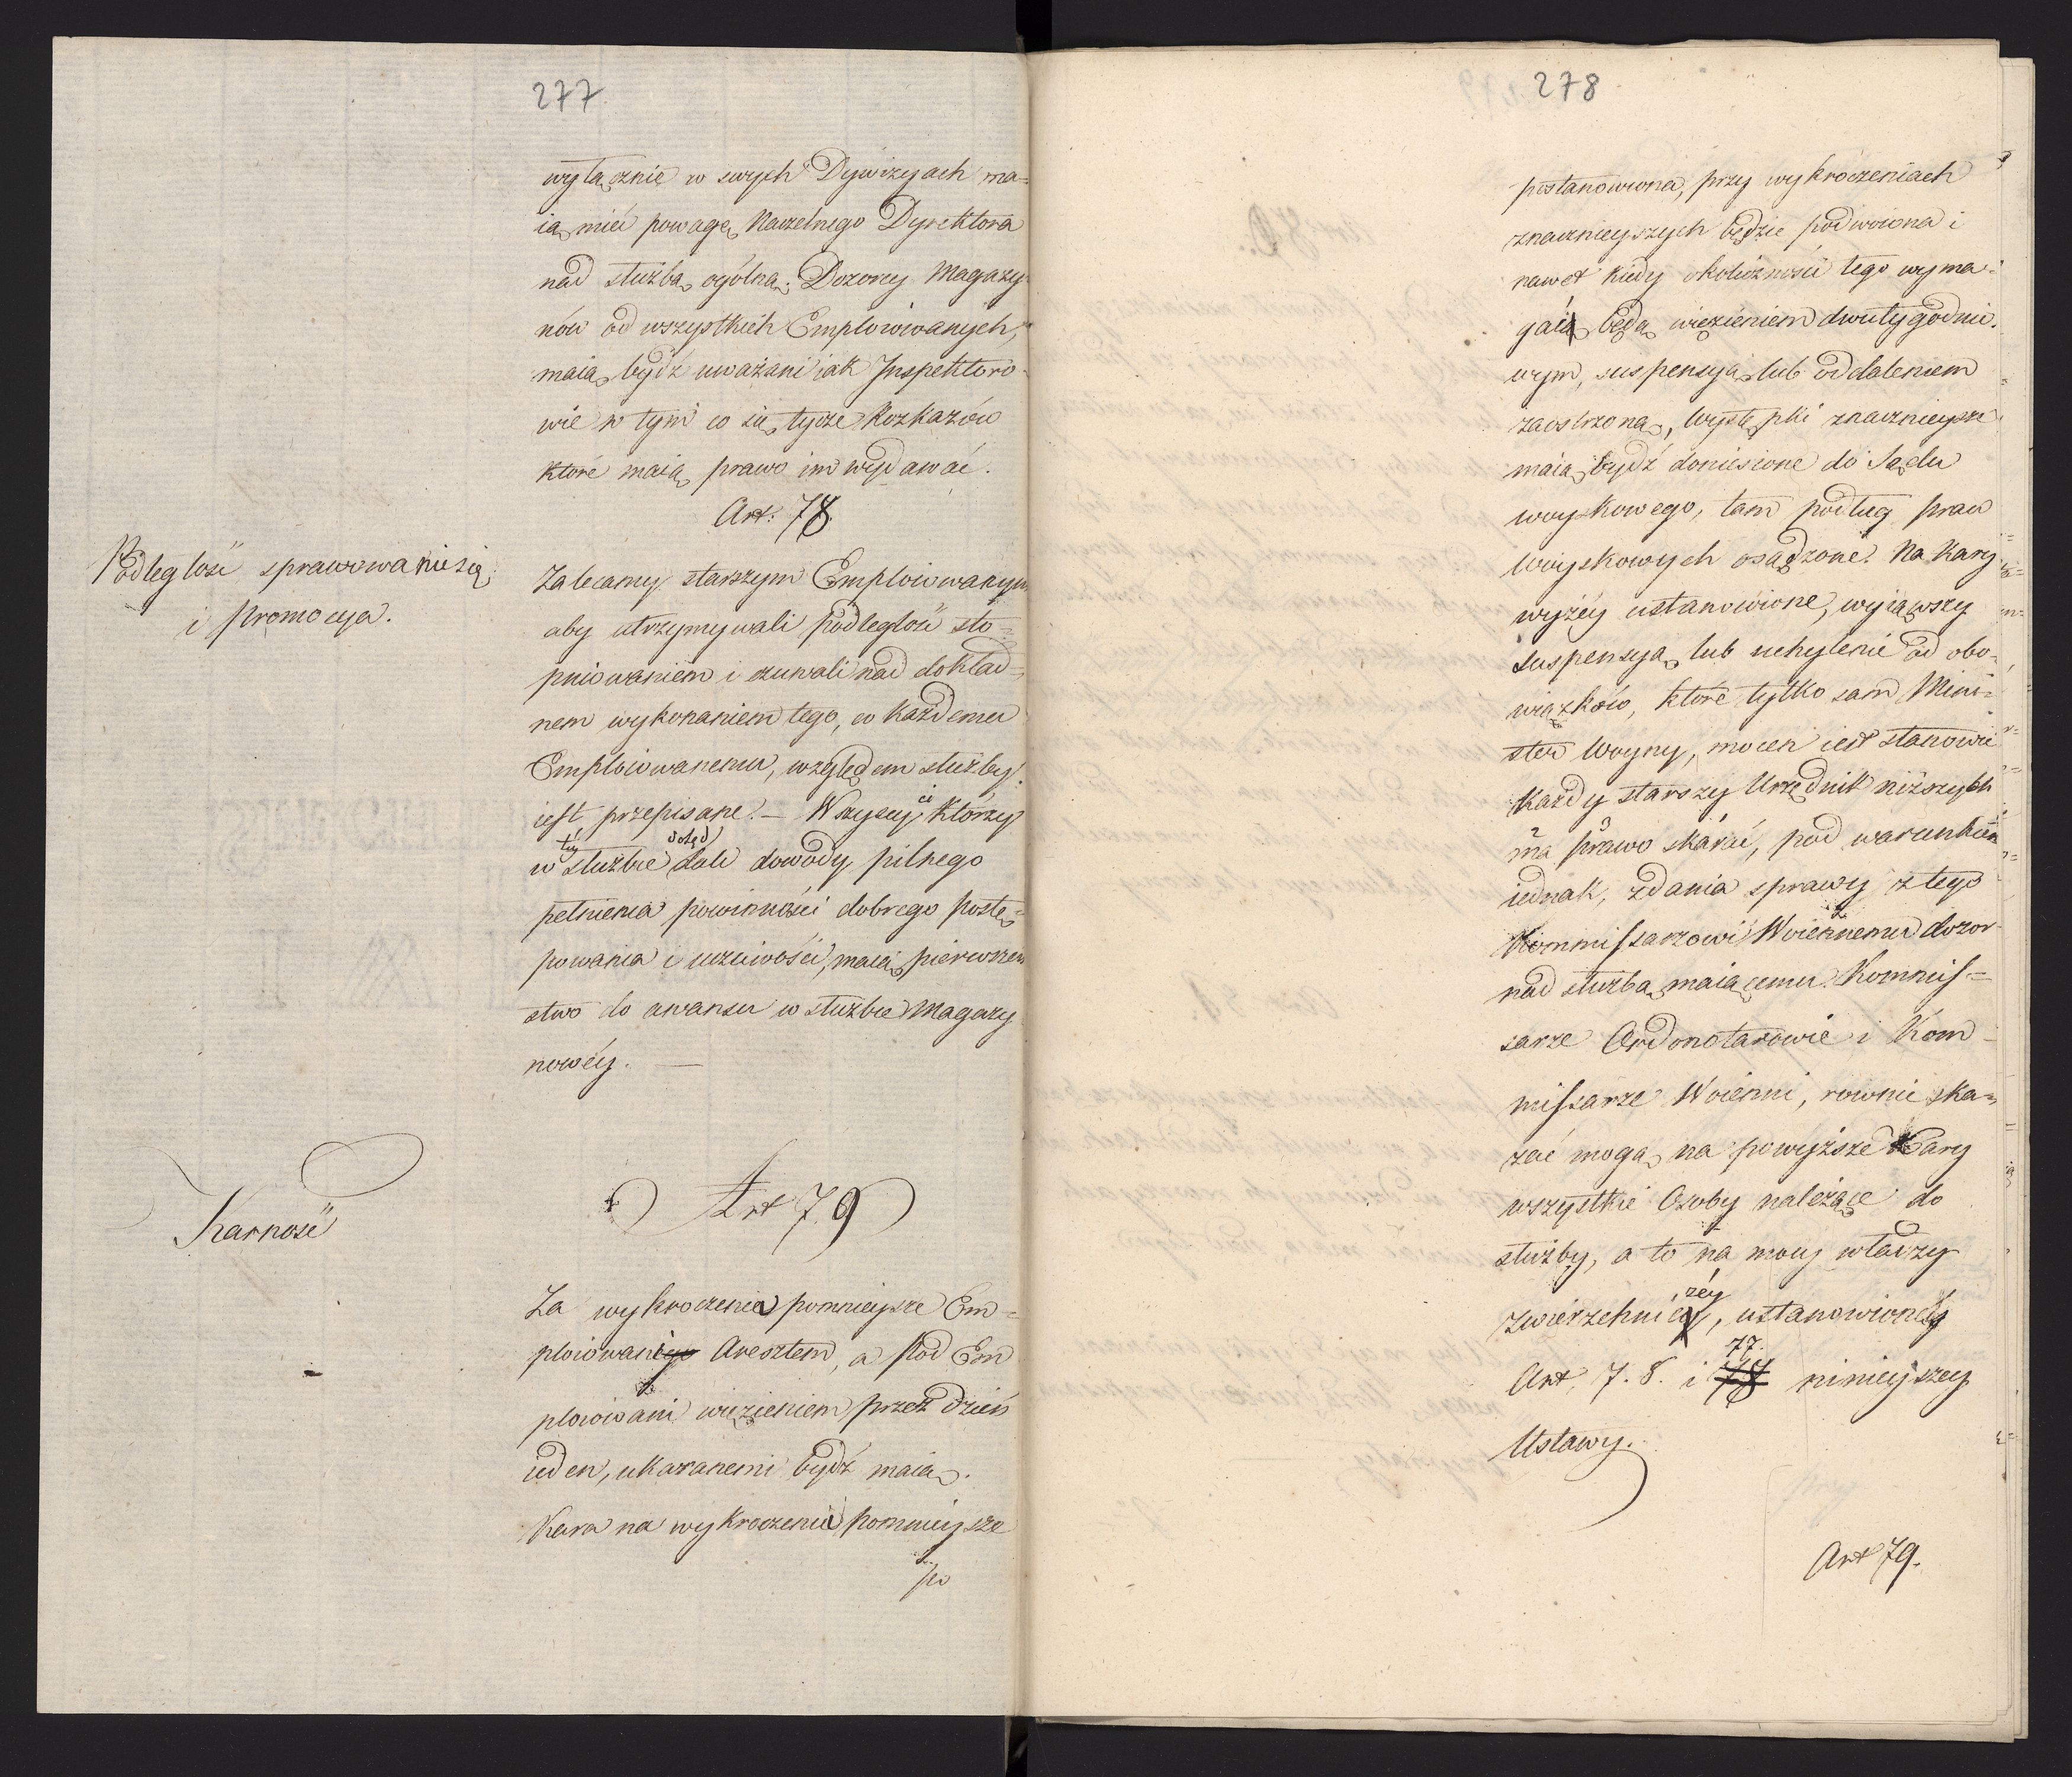 277.
wyłącznie w swych Dywizyach ma=
ią mieć powagę Naczelnego Dyrektora
nad służbą ogólną. Dozorcy Magazy=
nów od wszystkich Emploiowanych,
maią bydź uważani iak Inspektoro=
wie w tym co się tycze Rozkazów
które maią prawo im wydawać.
Art. 78.
Podległość sprawowanie się
i promocya.
Zalecamy starszym Emploiowanym
aby utrzymywali podległość sto=
pniowaniem i czuwali nad dokład=
nem wykonaniem tego, co każdemu
Emploiowanemu, względem służby
iest przepisane. — Wszyscy ci którzy
w téy służbie dotąd dali dowody pilnego
pełnienia powinności dobrego postę=
powania i uczciwości, maią pierwszeń
stwo do awansu w służbie Magazy
nowéy. —
Karność
Art 79
Za wykroczenia pomnieysze Em=
ploiowani Aresztem, a Pod Em
ploiowani więzieniem przez dzień
ieden, ukaranemi bydź maią.
Kara na wykroczenia pomnieysze
po
278
postanowiona, przy wykroczeniach
znacznieyszych będzie podwoiona i
nawet kiedy okoliczności tego wyma=
gać będą więzieniem dwutygodnio.
wym, suspensyą lub oddaleniem
zaostrzona, Występki znacznieysze
maią bydź doniesione do Sądu
woyskowego, tam podług praw
Woyskowych osądzone. Na kary
wyżéy ustanowione, wyiąwszy
suspensyą lub uchylenie od obo=
wiązków, które tylko sam Mini=
ster Woyny, mocen iest stanowić
Każdy starszy Urzędnik niższych
ma prawo skarać, pod warunkiem
iednak, zdania sprawy z tego
Kommissarzowi Woiennemu dozor
nad służbą maiącemu. Kommis=
sarze Ordonatorowie i Kom=
missarze Woienni, rownie ska=
zać mogą na powyższe Kary
wszystkie Osoby należące do
służby, a to na mocy władzy
zwierzchniczéy, ustanowionéy
Art. 7. 8. i 77. ninieyszey
Ustawy.
Art 79.